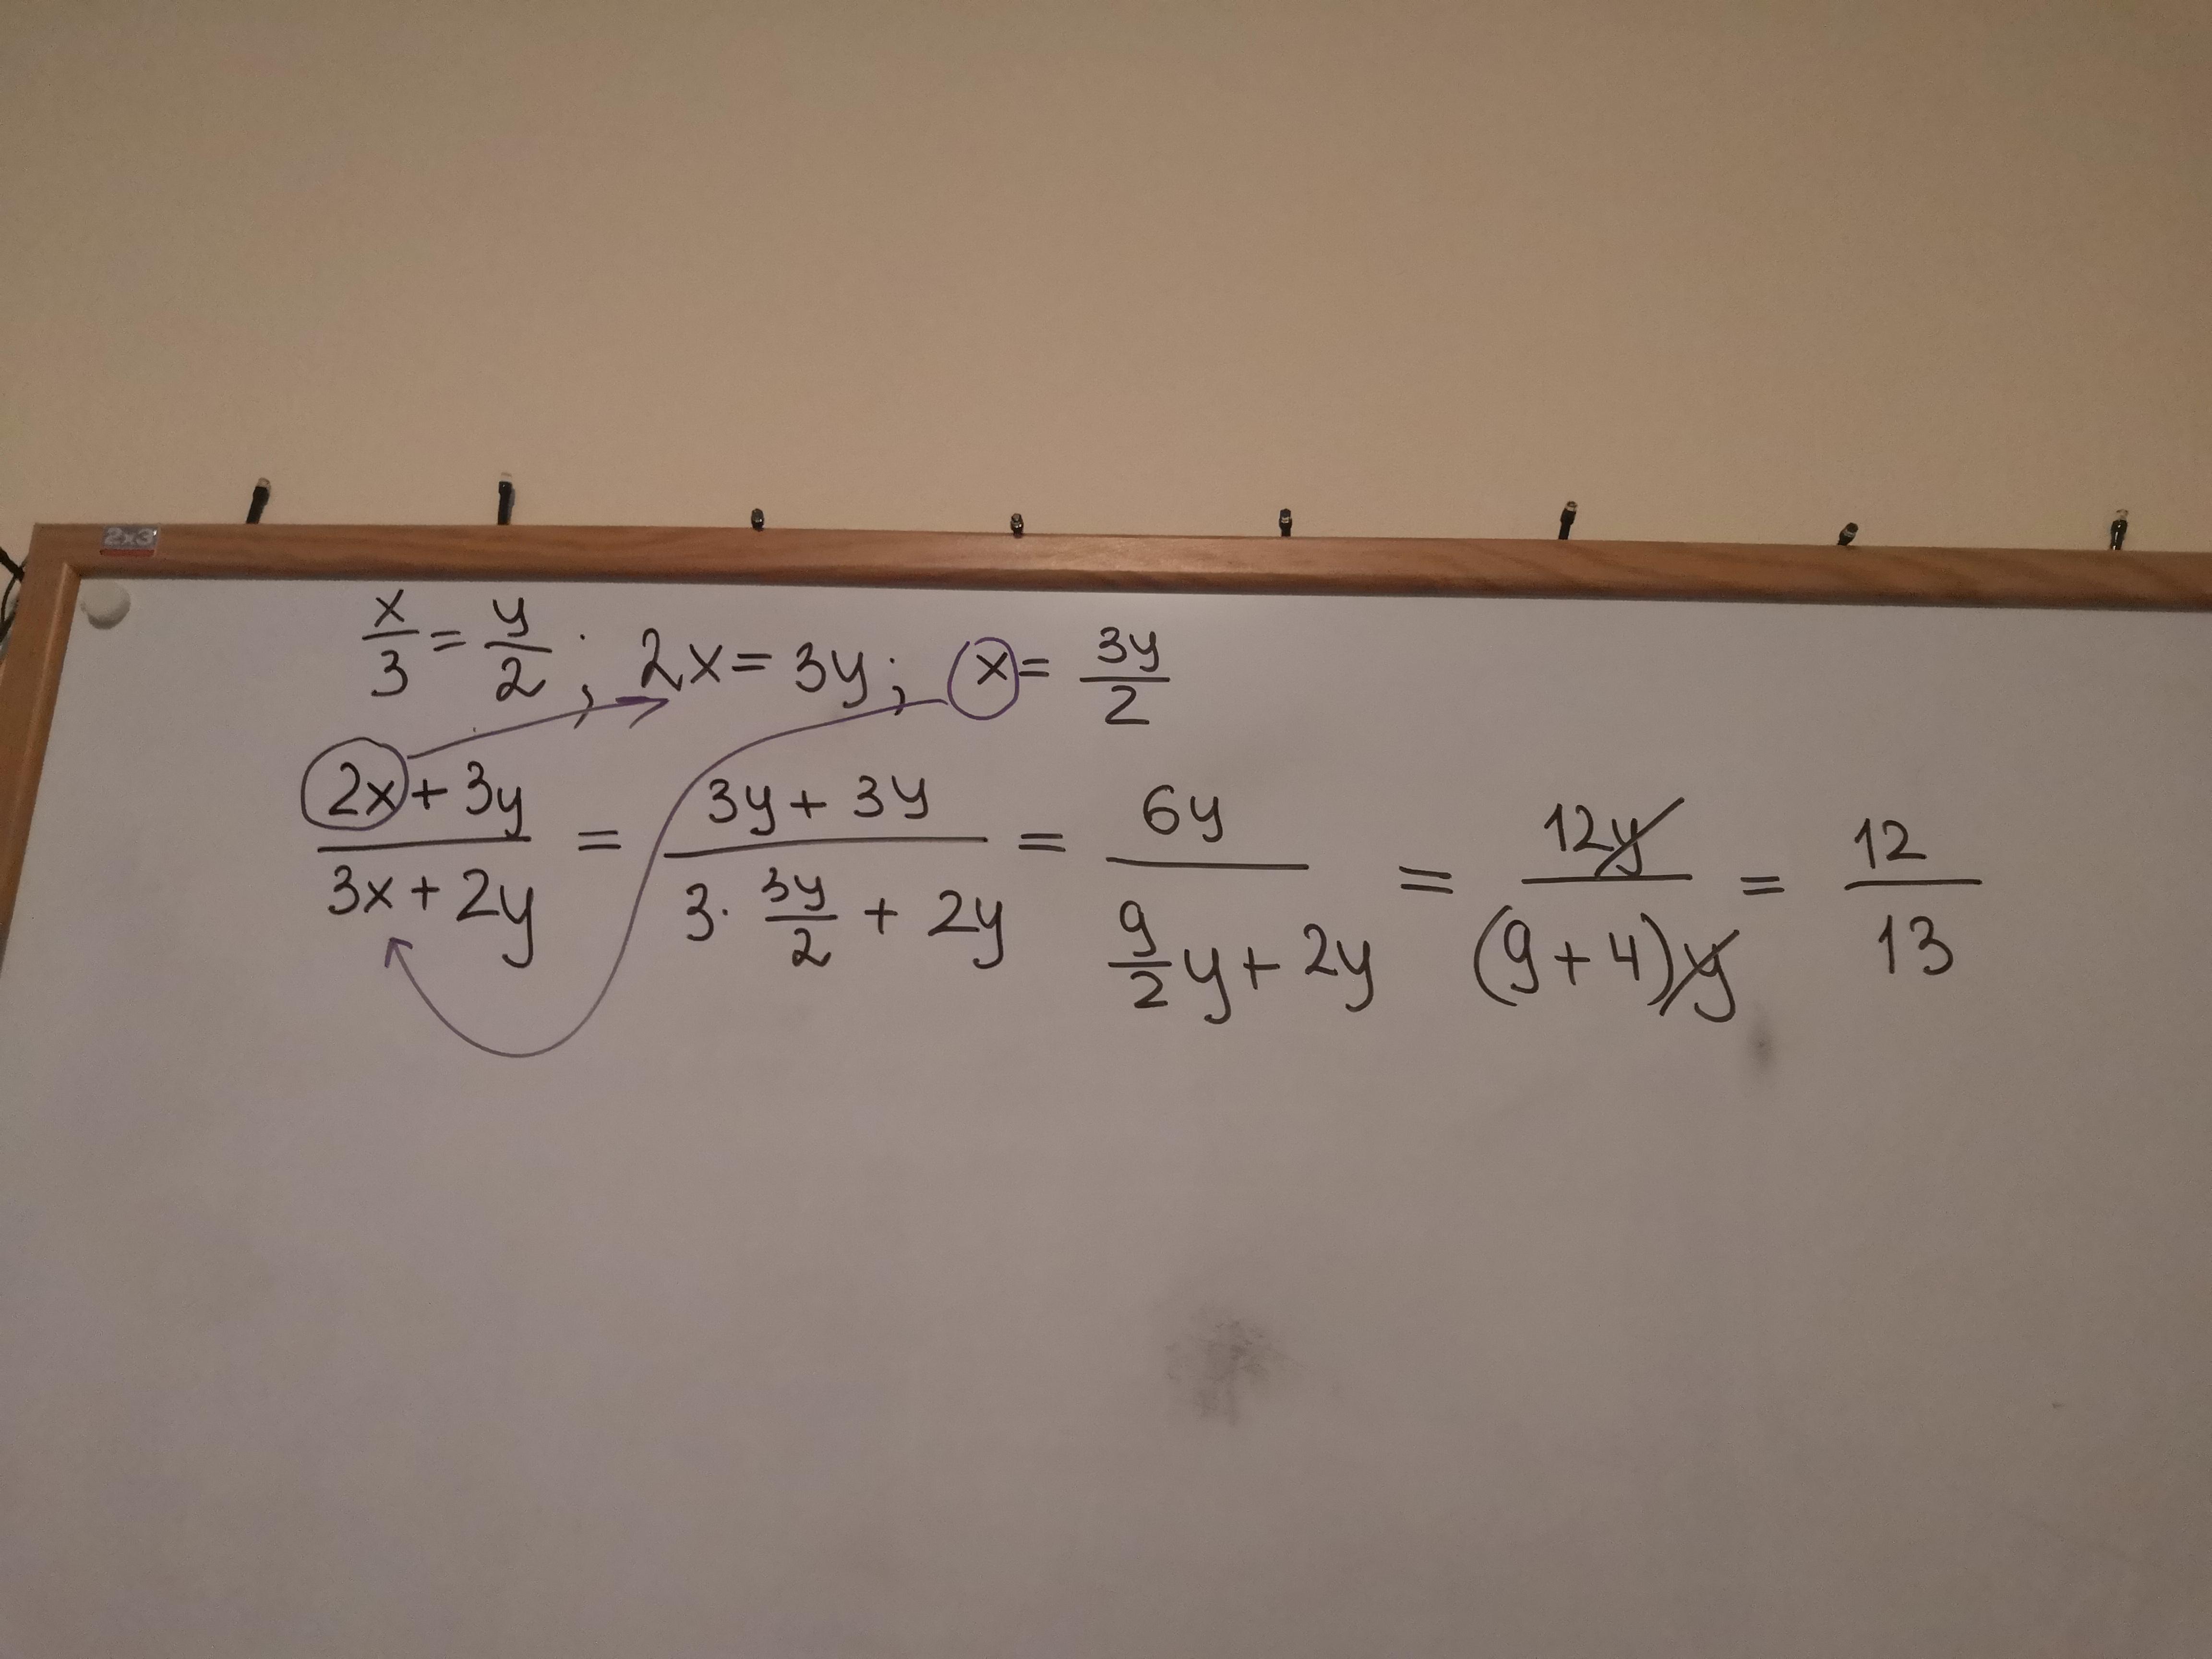 2x3
x/3 = y/2 ; 2x = 3y ; x = 3y/2
(2x + 3y)/(3x + 2y) = (3y + 3y)/(3 · 3y/2 + 2y) = 6y/(9/2 y + 2y) = 12y/((9 + 4)y) = 12/13